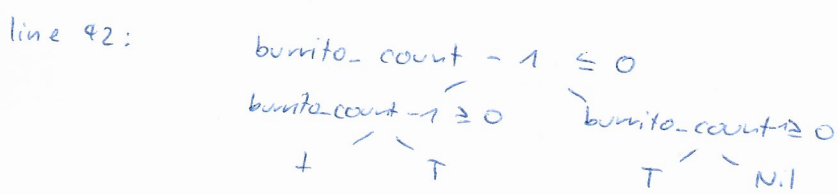 line 42:
burrito_count - 1 ≤ 0
burrito_count - 1 ≥ 0 burrito_count-1≥ 0
⊥ T T Nil